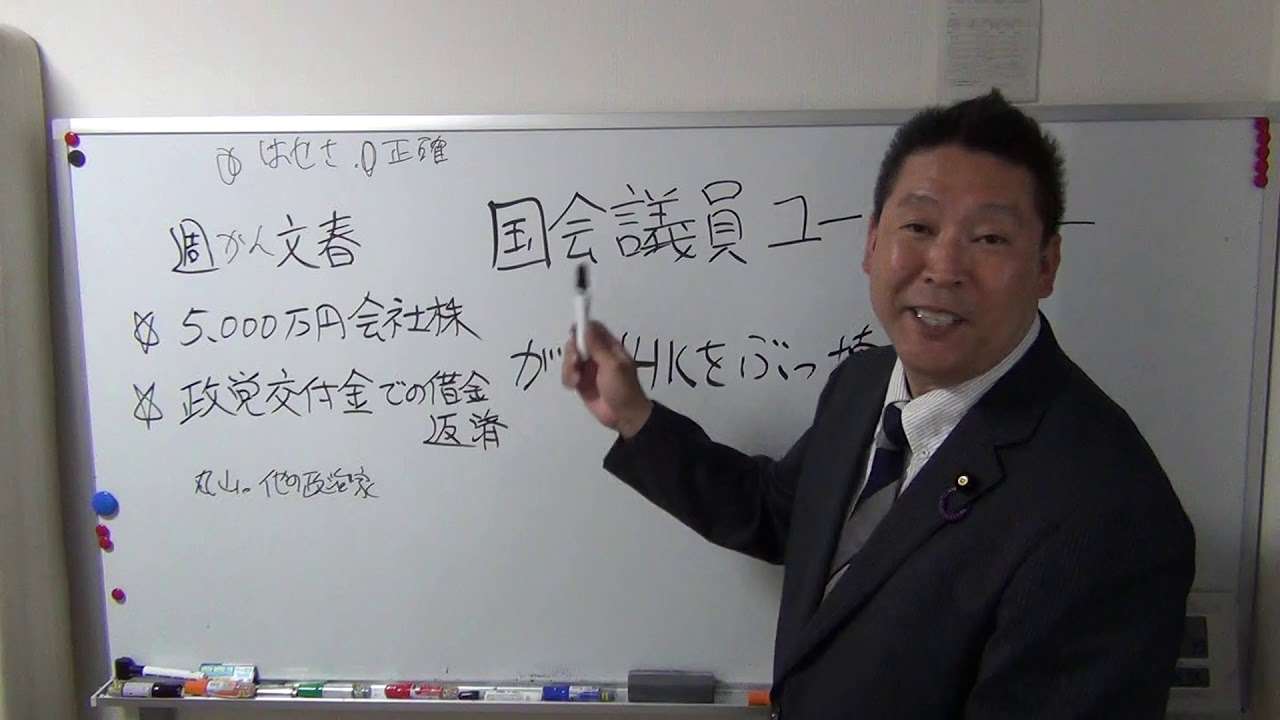 はせさ.0 正確
週がん文春
5.000万円会社株
政党交付金での借金
返済
丸山。他の政治家
国会議員ユー
が HKをぶっ